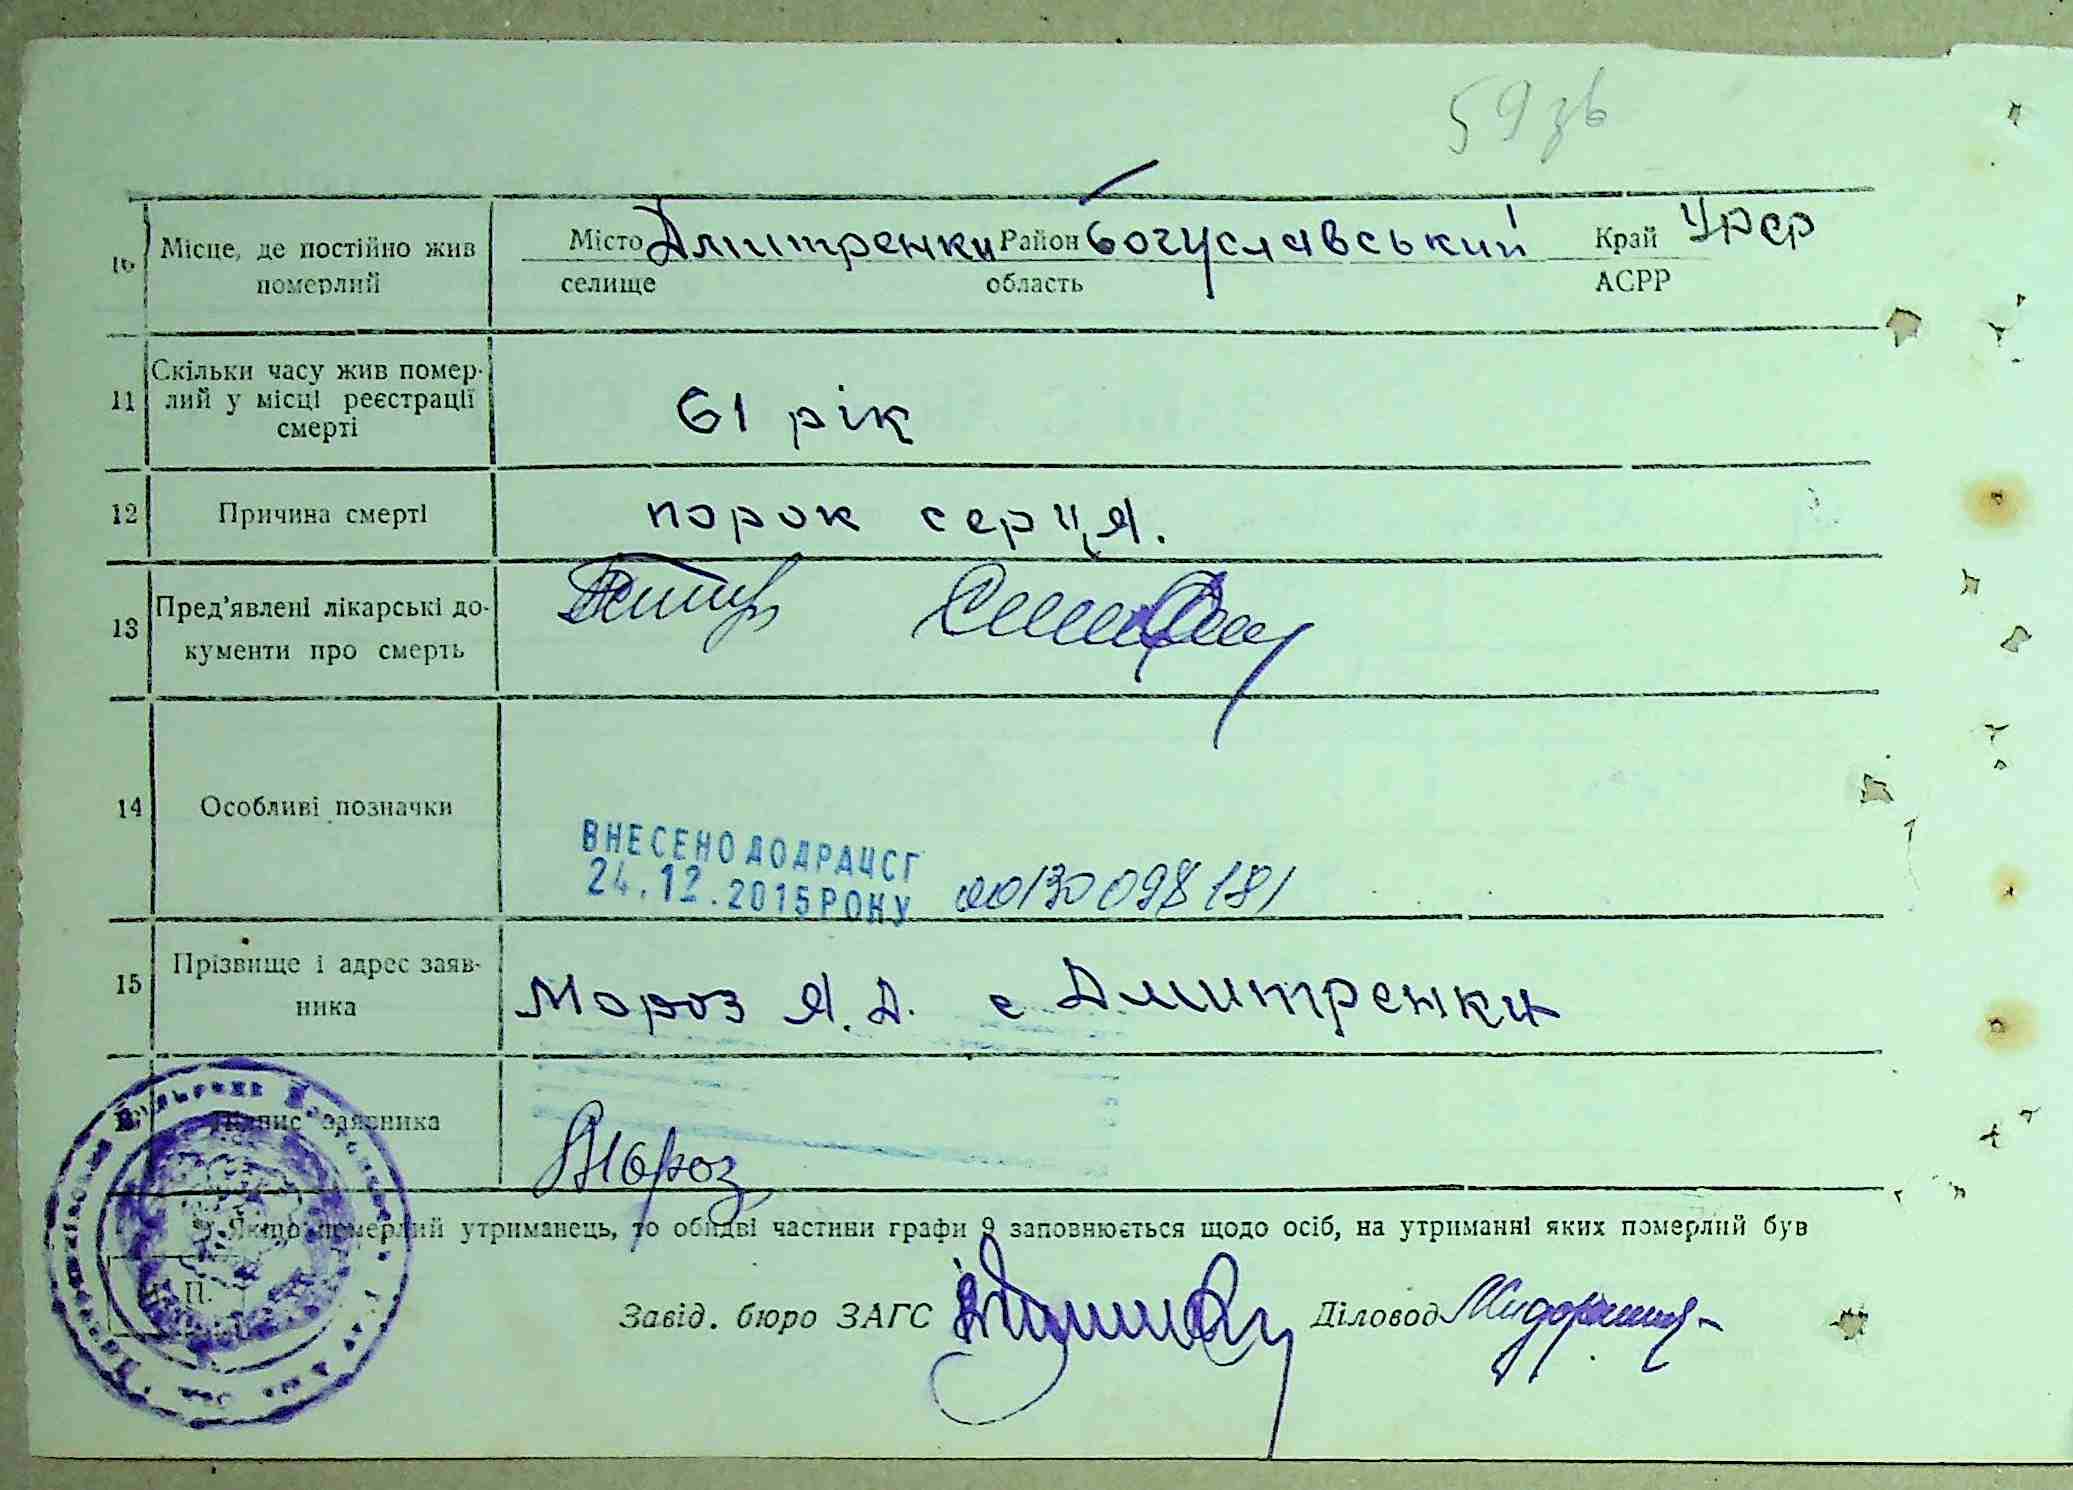 59 зв
10 Місце, де постійно жив померлий
Місто Дмитренки Район Богуславський Край УРСР
селище область АСРР
11 Скільки часу жив помер-
лий у місці реєстрації
смерті
61 рік
12 Причина смерті
порок серця.
13 Пред'явлені лікарські до-
кументи про смерть
14 Особливі позначки
ВНЕСЕНО ДО ДРАЦСГ
24.12.2015 РОКУ 00130098181
15 Прізвище і адрес заяв-
ника
Мороз Я. Д. с Дмитренки
Підпис заявника
Мороз
Якщо померлий утриманець, то обидві частини графи 9 заповнюється щодо осіб, на утриманні яких померлий був
М. П.
Завід. бюро ЗАГС Діловод